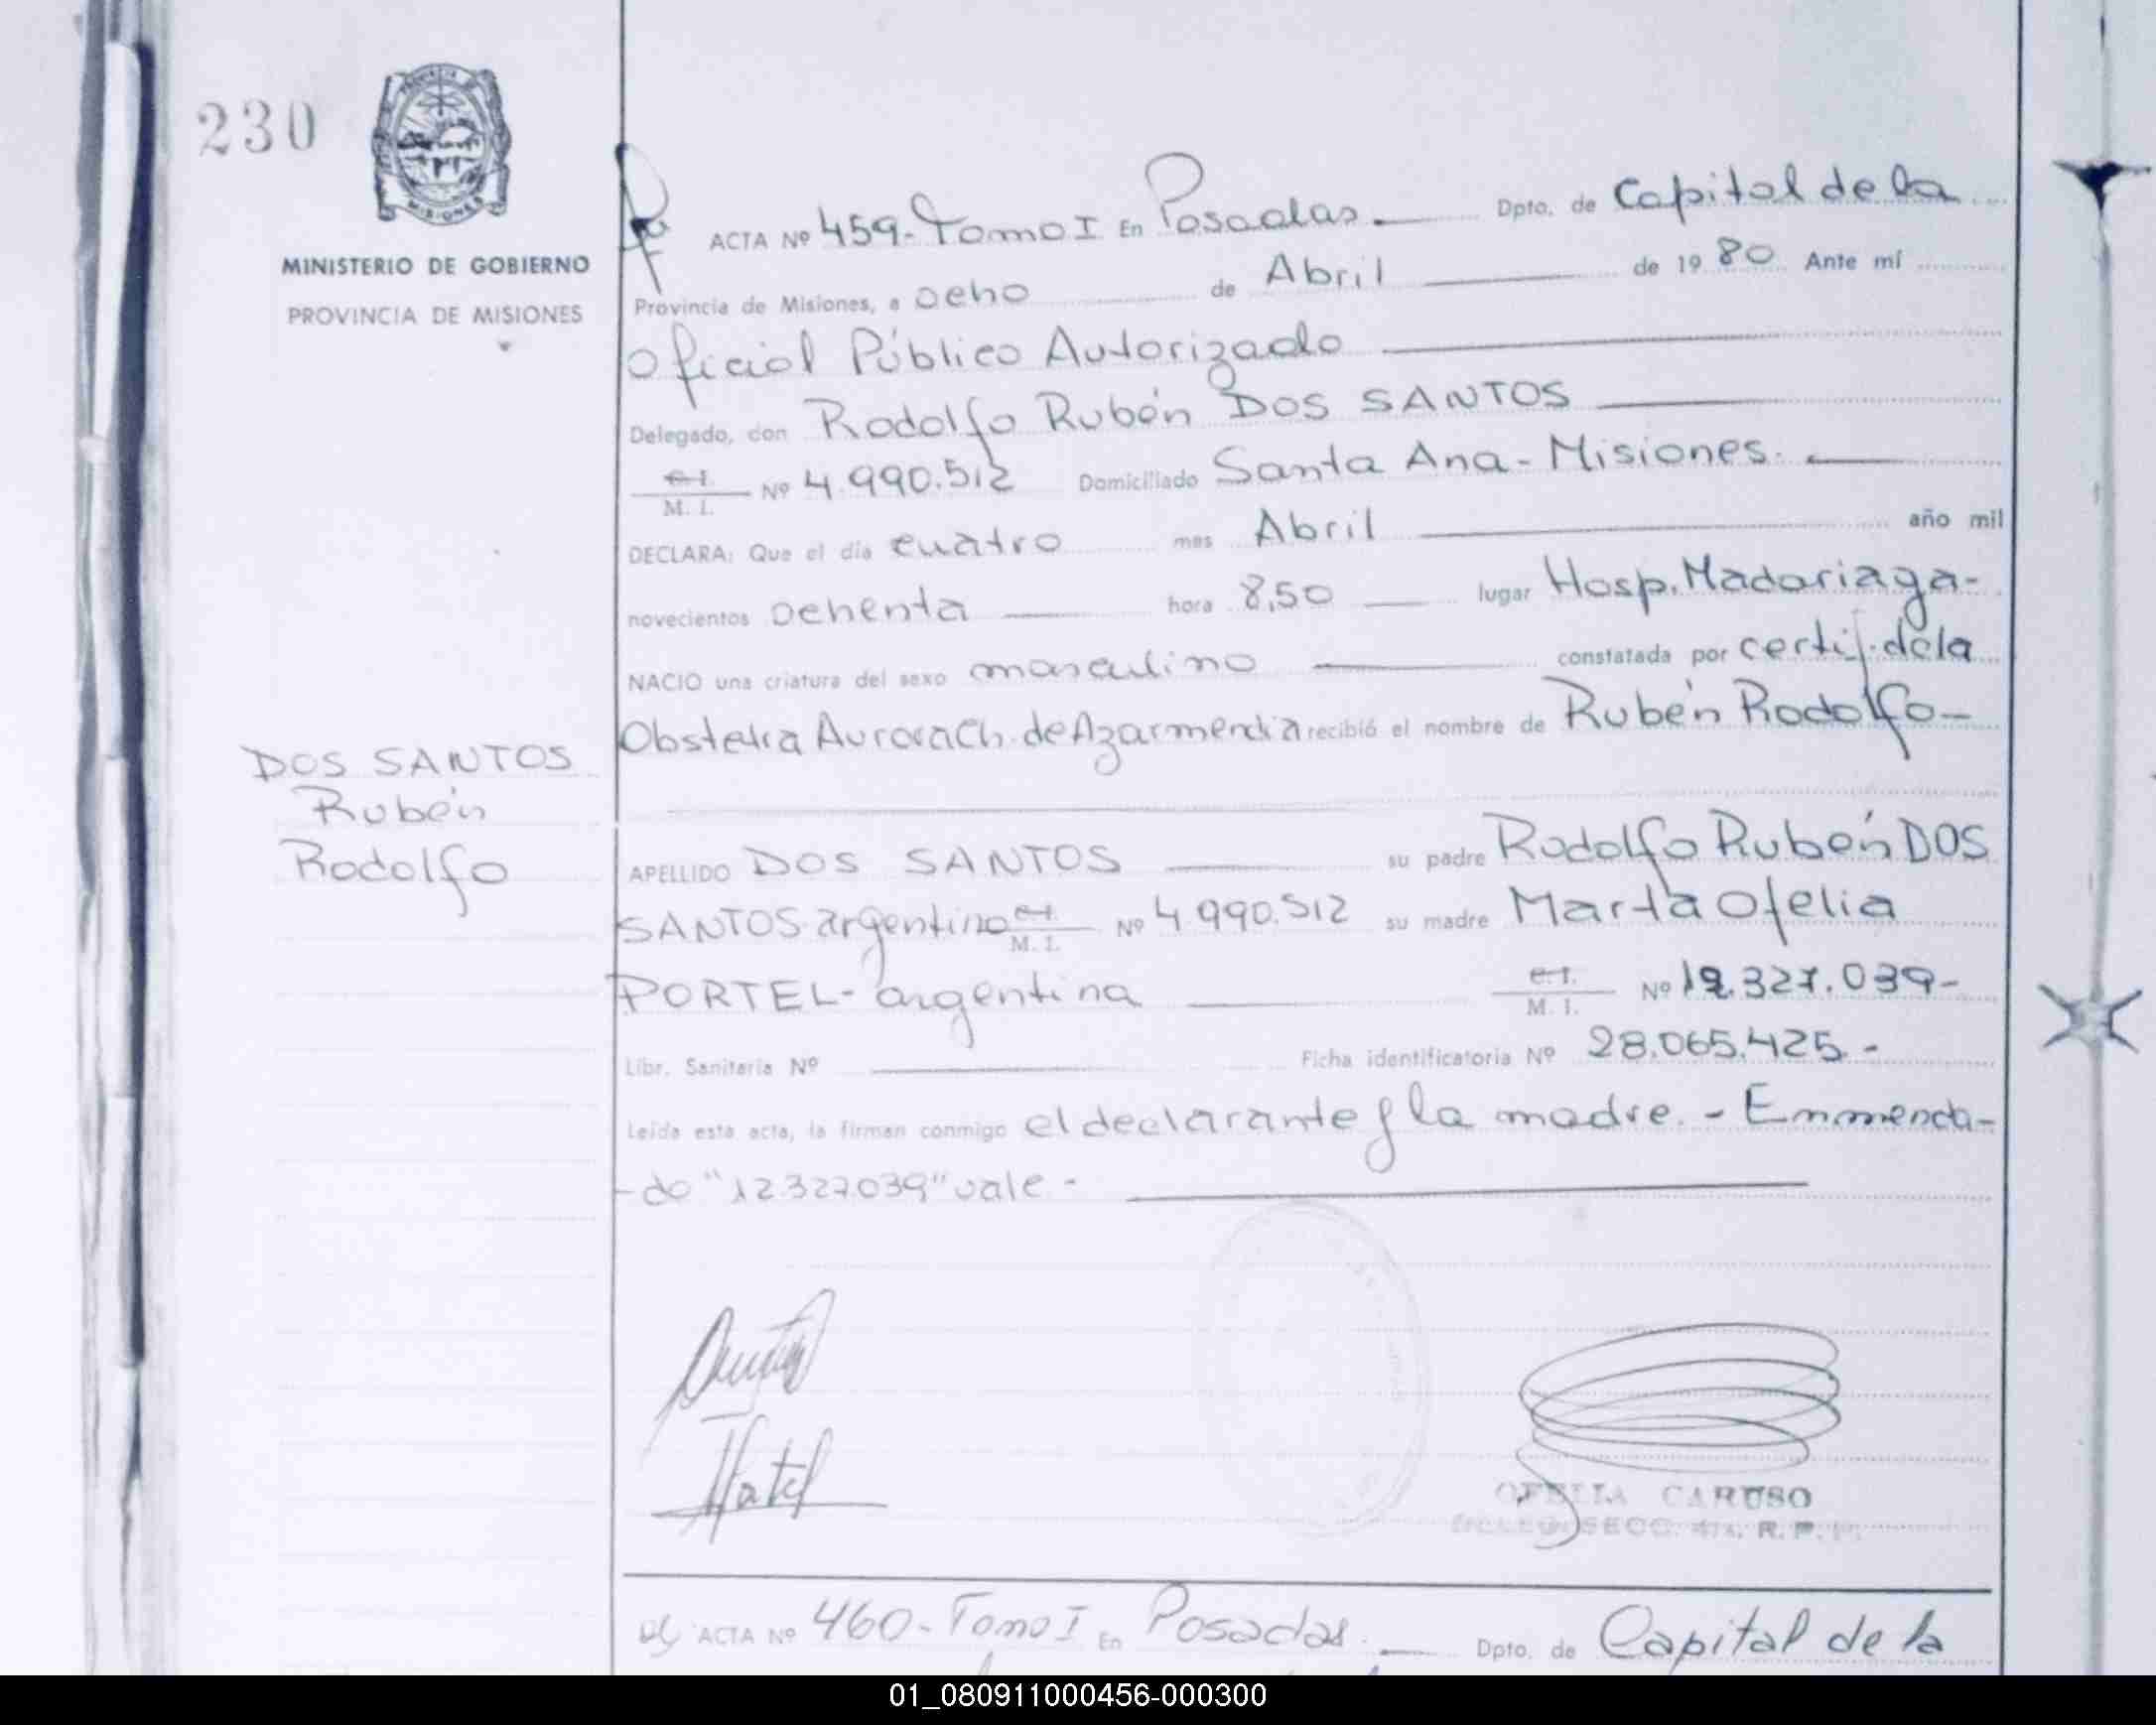 230
MISIONES
MINISTERIO DE GOBIERNO
PROVINCIA DE MISIONES
ACTA Nº 459-Tomo I En Posadas Dpto. de Capital de la
Provincia de Misiones, a ocho de Abril de 1980 Ante mí
Oficial Público Autorizado
Delegado, don Rodolfo Rubén DOS SANTOS
C.I.
M. I. Nº 4.990.512 Domiciliado Santa Ana - Misiones.
DECLARA: Que el día cuatro mes Abril año mil
novecientos ochenta hora 8,50 lugar Hosp. Madariaga-
NACIO una criatura del sexo masculino constatada por certif. de la
Obstetra Aurora Ch. de Azarmendia recibió el nombre de Rubén Rodolfo-
DOS SANTOS
Rubén
Rodolfo
APELLIDO DOS SANTOS su padre Rodolfo Rubén DOS
SANTOS argentino C.I. M. I. Nº 4.990.512 su madre Marta Ofelia
PORTEL- argentina C.I. M. I. Nº 12.327.039-
Libr. Sanitaria Nº Ficha identificatoria Nº 28.065.425.-
Leída esta acta, la firman conmigo el declarante y la madre. - Enmenda-
-do "12.327.039" vale -
OFELIA CARUSO
SECC. 4ta. R. P.
ACTA Nº 460-Tomo I En Posadas. Dpto. de Capital de la
01_080911000456-000300